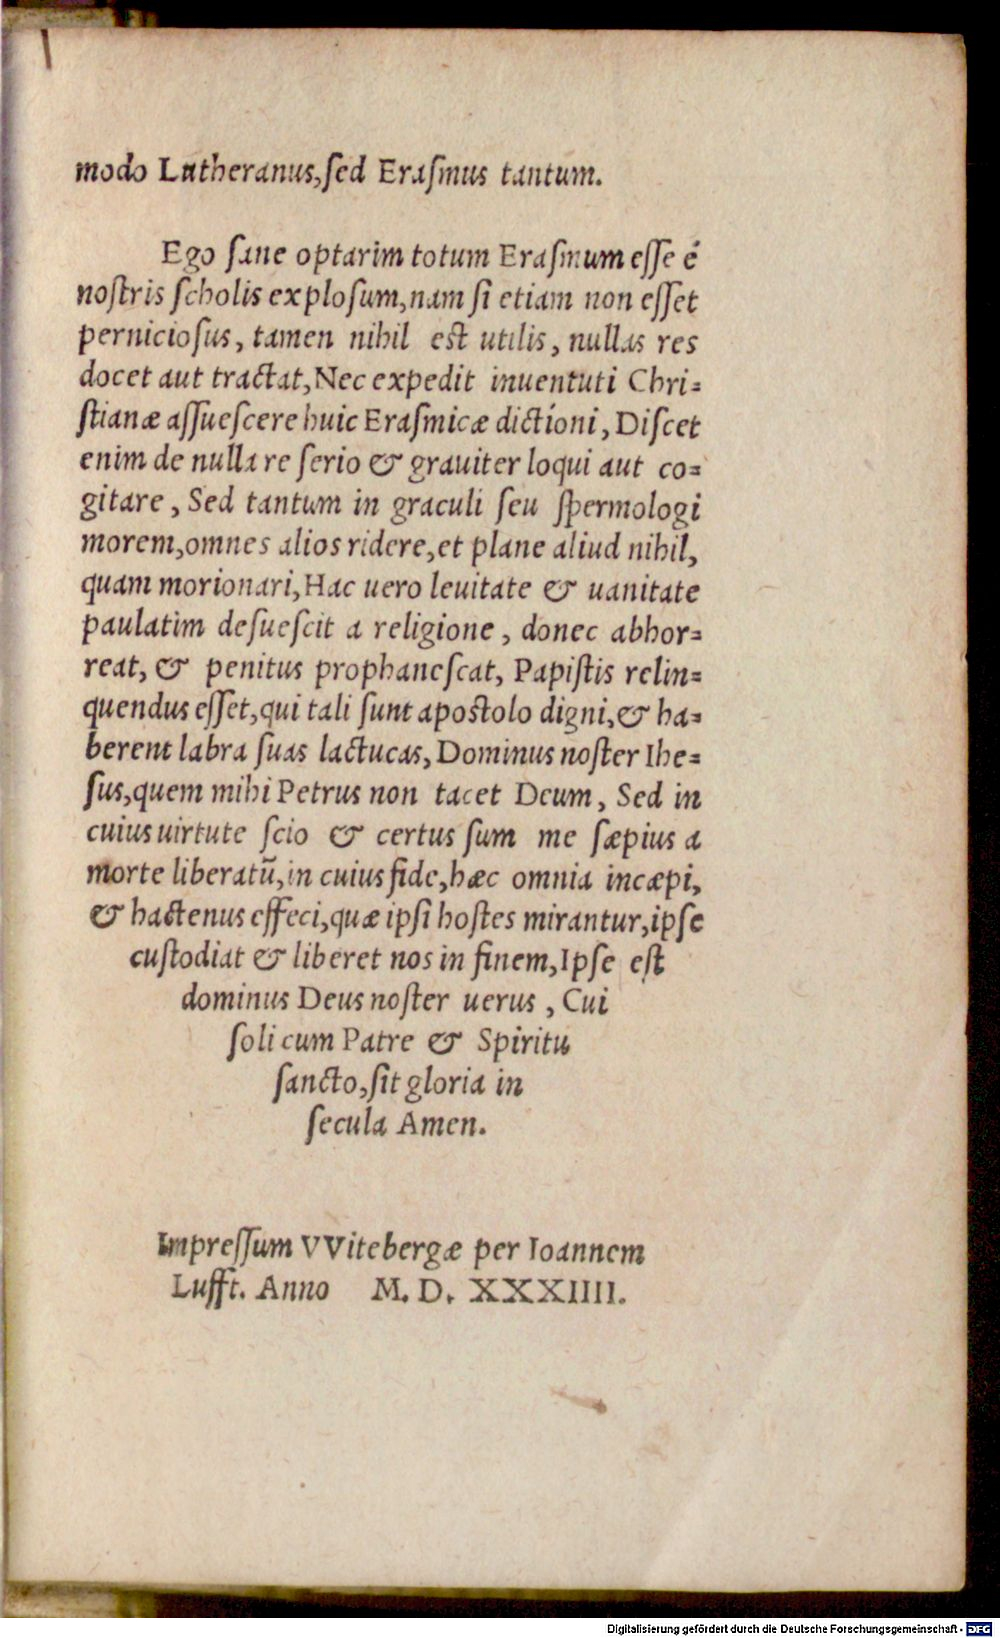 modo Lutheranus,ſed Eraſmus tantum.
Ego ſane optarim totum Eraſmum eſſe é
noſtris ſcholis exploſum,nam ſi etiam non eſſet
pernicioſus, tamen nihil est utilis, nullas res
docet aut tractat,Nec expedit inuentuti Chri=
ſtianæ aſſueſcere huic Eraſmicæ dictioni, Diſcet
enim de nulla re ſerio & grauiter loqui aut co=
gitare, Sed tantum in graculi ſeu ſpermologi
morem,omnes alios ridere,et plane aliud nihil,
quam morionari,Hac uero leuitate & uanitate
paulatim deſueſcit a religione, donec abhor=
reat, & penitus prophaneſcat, Papiſtis relin=
quendus eſſet,qui tali ſunt apostolo digni,& ha=
berent labra ſuas lactucas, Dominus noſter Ihe=
ſus,quem mihi Petrus non tacet Deum, Sed in
cuius uirtute ſcio & certus ſum me ſæpius a
morte liberatū,in cuius fide,hæc omnia incæpi,
& hactenus effeci,quæ ipſi hoſtes mirantur,ipſe
cuſtodiat & liberet nos in finem,Ipſe eſt
dominus Deus noſter uerus, Cui
ſoli cum Patre & Spiritu
ſancto,ſit gloria in
ſecula Amen.
Impreſſum VVitebergæ per Ioannem
Lufft. Anno M. D. XXXIIII.
Digitalisierung gefördert durch die Deutsche Forschungsgemeinschaft - DFG